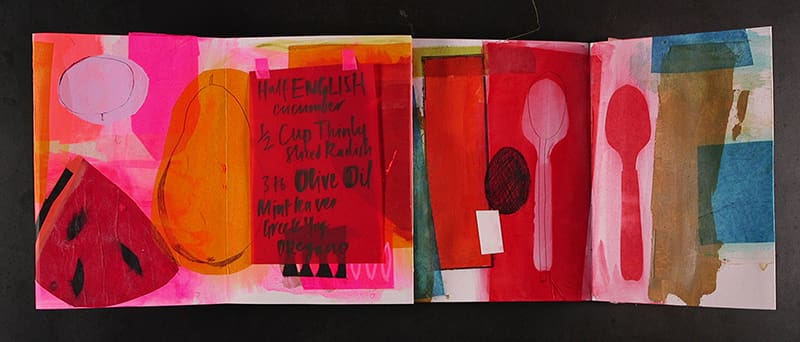 Half ENGLISH
cucumber
1/2 Cup Thinly
Sliced Radish
3 tb Olive Oil
Mint leaves
Greek Yog
Oregano